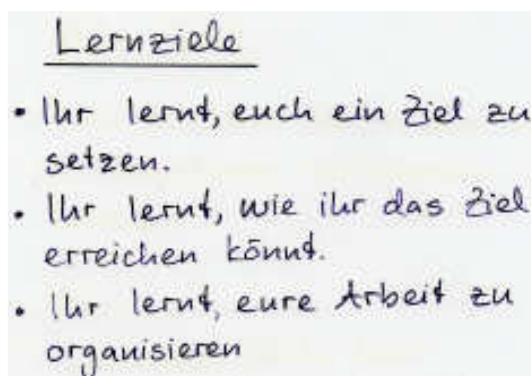 Lernziele
• Ihr lernt, euch ein Ziel zu
setzen.
• Ihr lernt, wie ihr das Ziel
erreichen könnt.
• Ihr lernt, eure Arbeit zu
organisieren